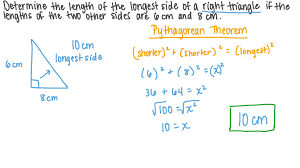 Determine the length of the longest side of a right triangle if the
lengths of the two other sides are 6 cm and 8 cm.
Pythagorean Theorem
(shorter)² + (shorter)² = (longest)²
10 cm
longest side
6 cm
8 cm
(6)² + (8)² = (x)²
36 + 64 = x²
√100 = √x²
10 = x
10 cm